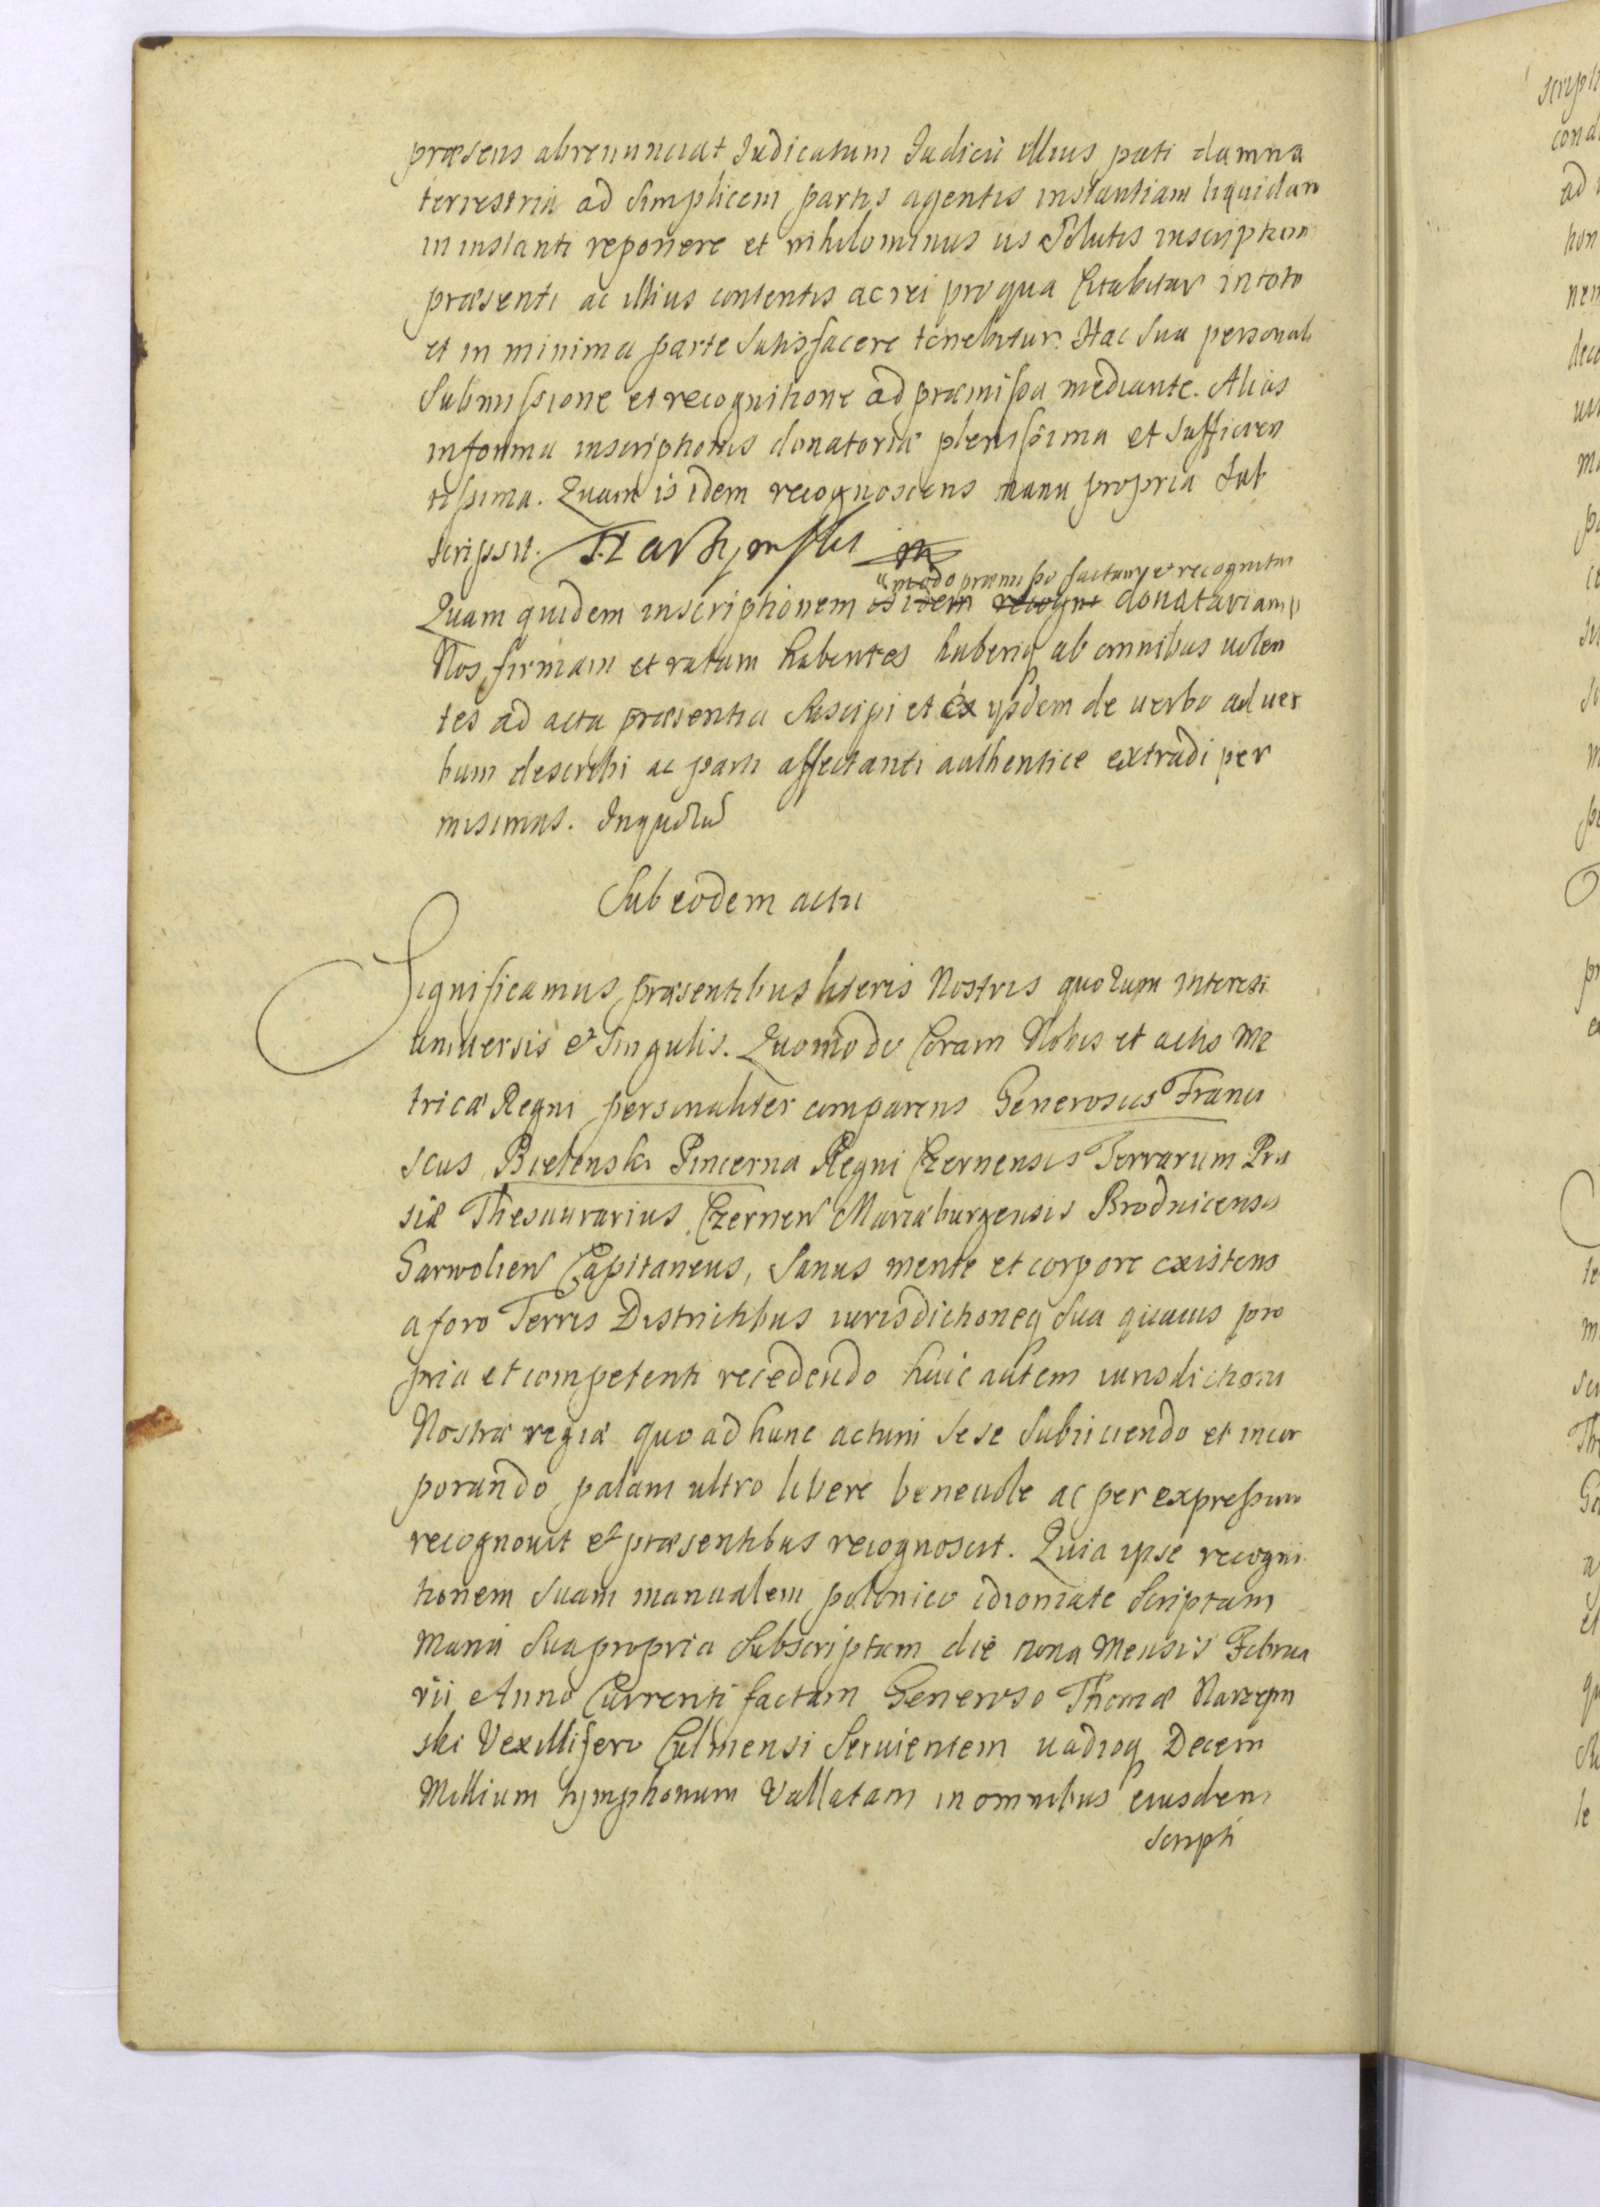 præsens abrenunciat Iudicatum Iudicii illius pati damna
terrestria ad simplicem partis agentis instantiam liquidan
in instanti reponere et nihilominus iis solutis inscription
præsenti ac illius contentis ac rei pro qua Citabitur in toto
et in minima parte satisfacere tenebitur. Hac sua personali
submissione et recognitione ad præmissa mediante. Alias
in forma inscriptionis donatoriæ plenissima et sufficien
tissima. Quam is idem recognoscens manu propria sub
scripsit.
modo præmisso factam et recognitam
Quam quidem inscriptionem is idem recogni donatariam
Nos firmam et ratam habentes haberiq ab omnibus volen
tes ad acta præsentia suscipi et ex ysdem de verbo ad ver
bum describi ac parti affectanti authentice extradi per
misimus. In quor
Sub eodem actu
Significamus præsentibus literis Nostris quorum interest
universis et singulis. Quomodo Coram Nobis et actis Me
tricæ Regni personaliter comparens Generosus Franci
scus Bielenski Pincerna Regni Czernensis Terrarum Prus
siæ Thesaurarius Czernen Mariæburgensis Brodnicensis
Garwolien Capitaneus, sanus mente et corpore existens
a foro Terris Districtibus iurisdictioneq sua quavis pro
pria et competenti recedendo huic autem iurisdictioni
Nostræ regiæ quo ad hunc actum sese subiiciendo et incor
porando palam ultro libere benevole ac per expressum
recognovit et præsentibus recognoscit. Quia ipse recogni
tionem suam manualem polonico idiomate scriptam
manu sua propria subscriptam die nona Mensis Februa
rii Anno Currenti factam Generoso Thomæ Narzym
ski Vexillifero Culmensi servientem vadioq Decem
Millium hymphonum Vallatam in omnibus eiusdem
scripti